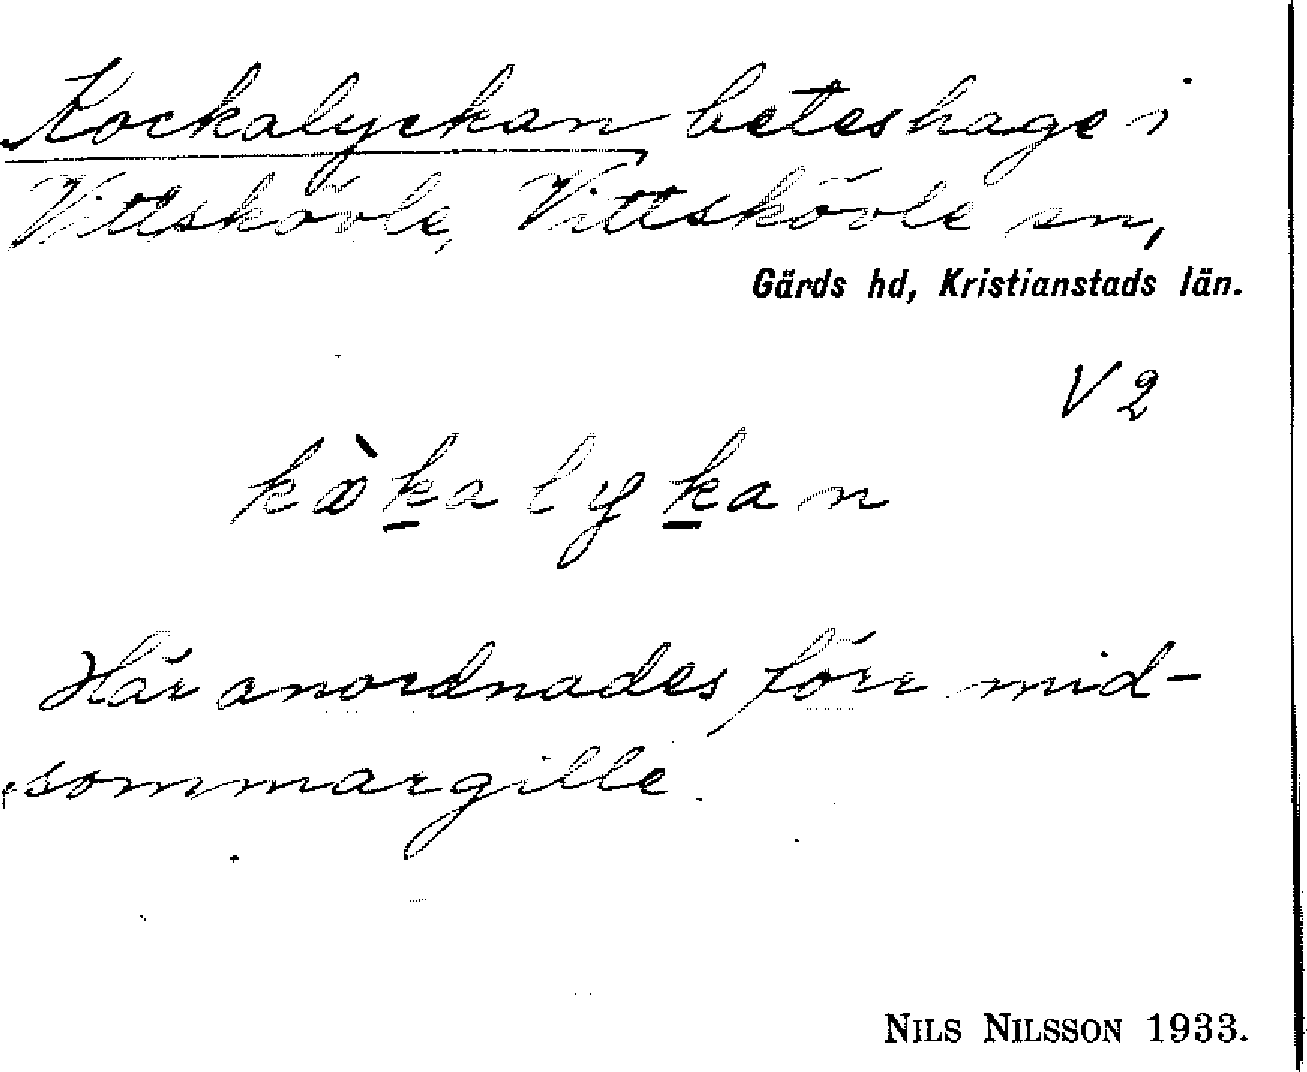 Kockalyckan beteshage i
Vittskövle, Vittskövle sn,
Gärds hd, Kristianstads län.
V 2
kò̱ka lykan
Här anordnades förr mid-
sommargille.
NILS NILSSON 1933.